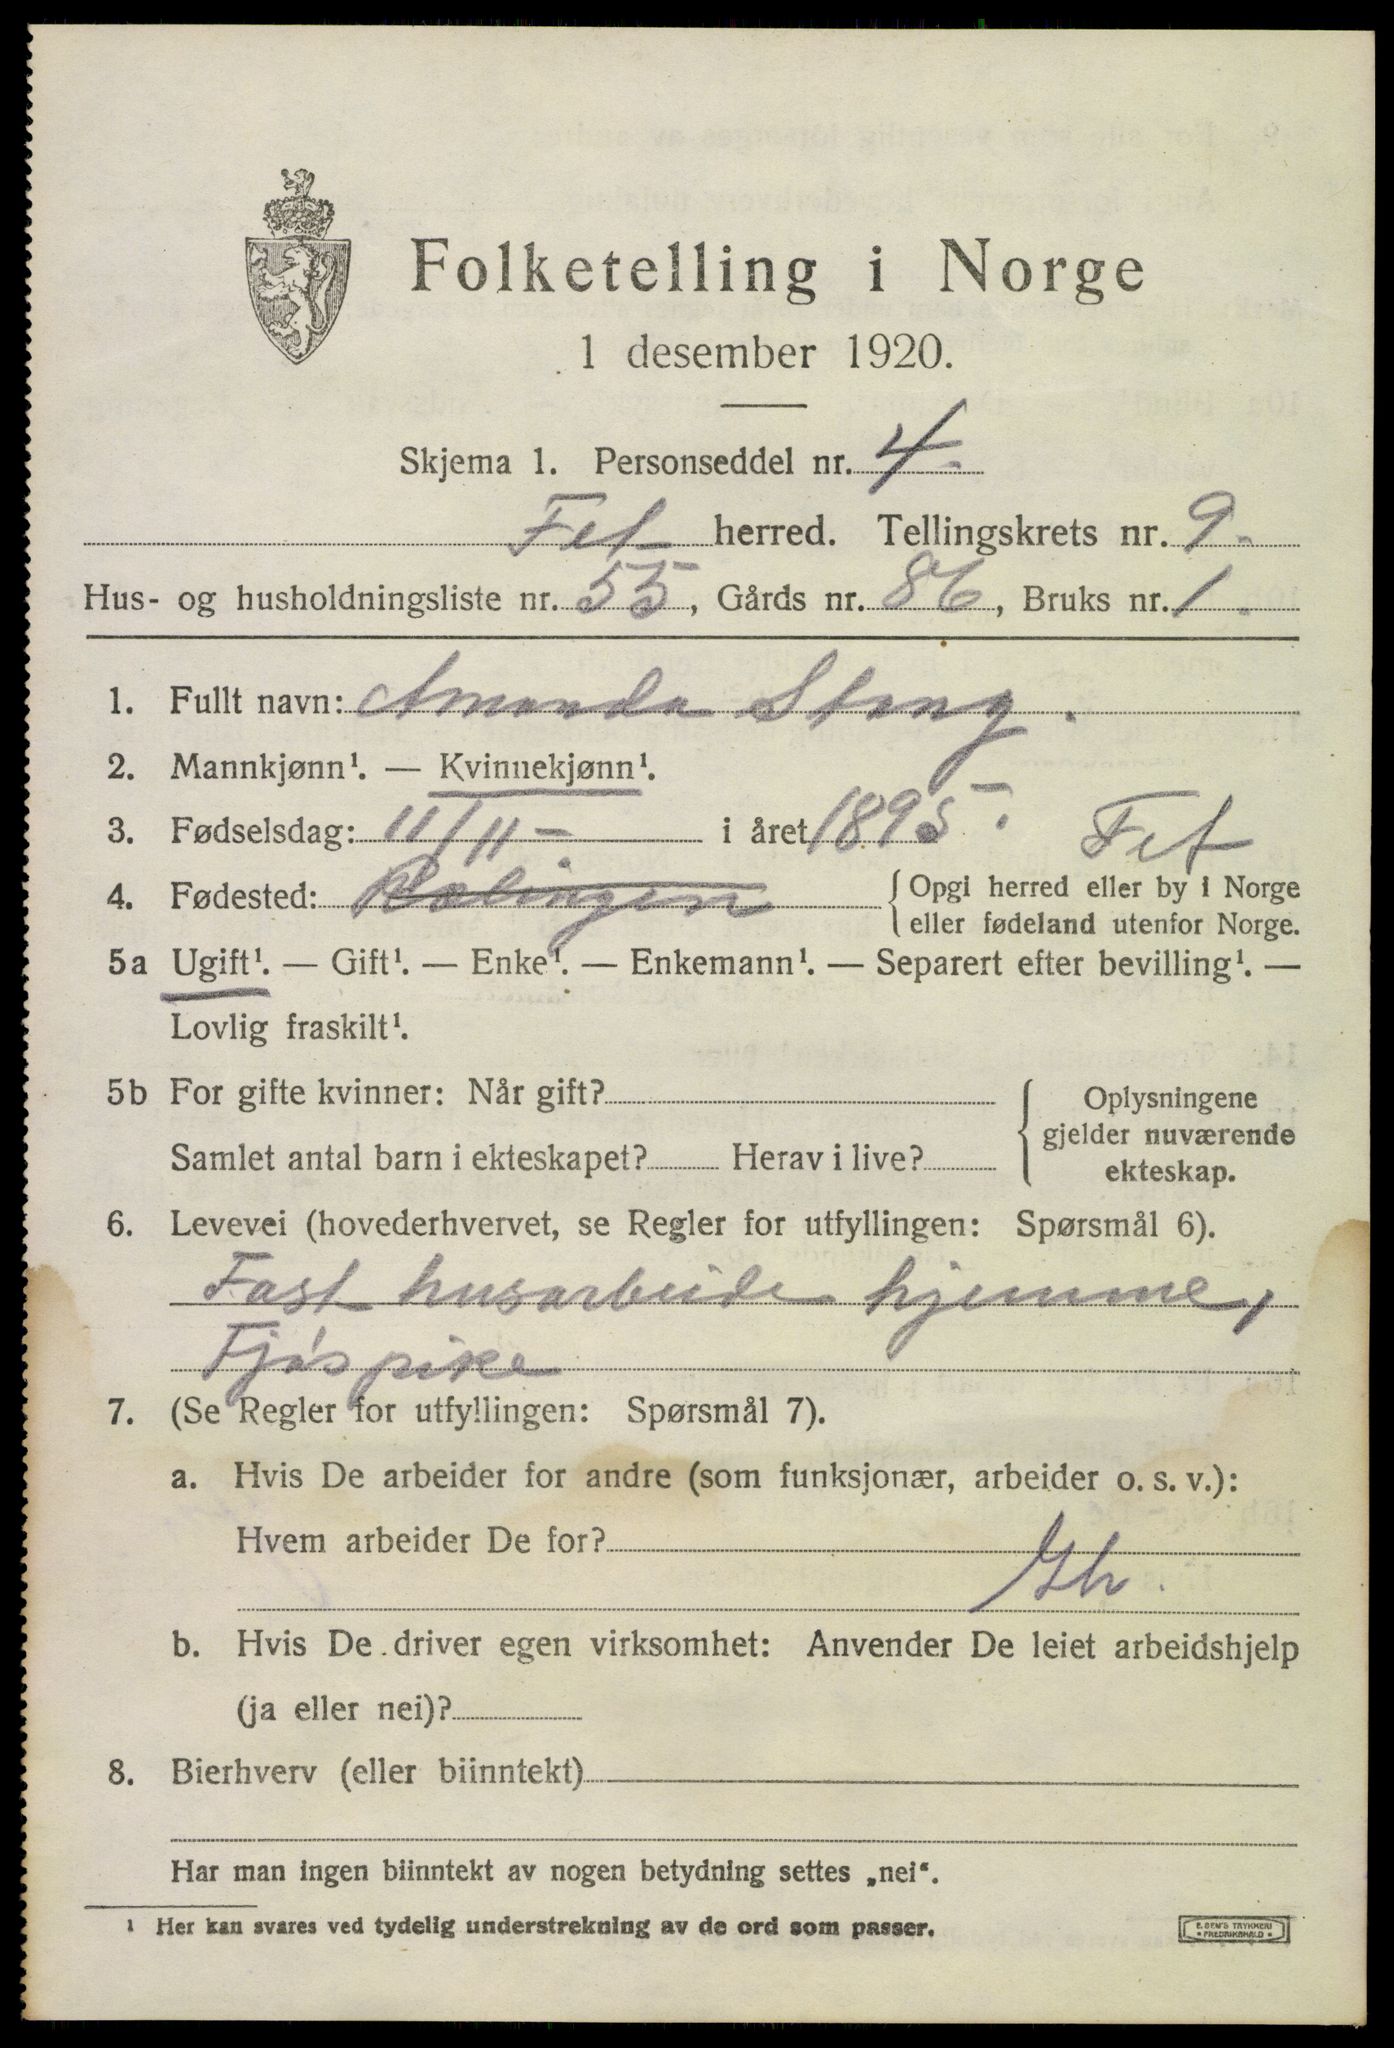 Folketelling i Norge
1 desember 1920.
Skjema 1. Personseddel nr. 4.
Fet herred. Tellingskrets nr. 9.
Hus- og husholdningsliste nr. 55, Gårds nr. 86, Bruks nr. 1.
1. Fullt navn: Amanda Stang.
2. Mannkjønn¹. — Kvinnekjønn¹.
3. Fødselsdag: 11/11- i året 1895. Fet
4. Fødested: Rælingen { Opgi herred eller by i Norge
eller fødeland utenfor Norge.
5a Ugift¹. — Gift¹. — Enke¹. — Enkemann¹. — Separert efter bevilling¹. —
Lovlig fraskilt¹.
5b For gifte kvinner: Når gift?
Samlet antal barn i ekteskapet? Herav i live?
{ Oplysningene
gjelder nuværende
ekteskap.
6. Levevei (hovederhvervet, se Regler for utfyllingen: Spørsmål 6).
Fast husarbeide hjemme,
Fjøspike
7. (Se Regler for utfyllingen: Spørsmål 7).
a. Hvis De arbeider for andre (som funksjonær, arbeider o. s. v.):
Hvem arbeider De for?
Gh.
b. Hvis De driver egen virksomhet: Anvender De leiet arbeidshjelp
(ja eller nei)?
8. Bierhverv (eller biinntekt)
Har man ingen biinntekt av nogen betydning settes „nei“.
¹ Her kan svares ved tydelig understrekning av de ord som passer.
E. SEM'S TRYKKERI
FREDRIKSHALD